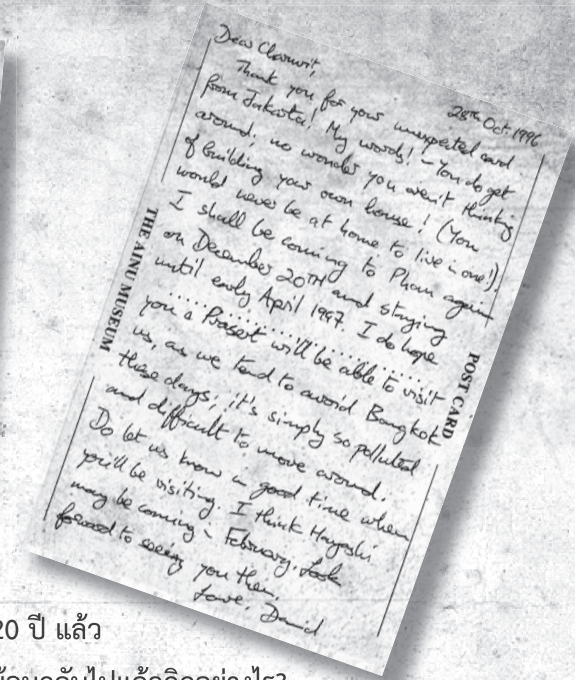 28TH Oct. 1996
Dear Charnvit,
Thank you for your unexpected card
from Jakarta! My words! – You do get
around, no wonder you aren't thinking
of building your own house! (You
would never be at home to live in one!).
I shall be coming to Phom again
on December 20TH and staying
until early April 1997. I do hope
you & Prasert will be able to visit
us, as we tend to avoid Bangkok
these days; it's simply so polluted
and difficult to move around.
Do let us know in good time when
you'll be visiting. I think Hayashi
may be coming in February. Look
forward to seeing you then,
Love, David
THE AINU MUSEUM
POST CARD
20 ปี แล้ว